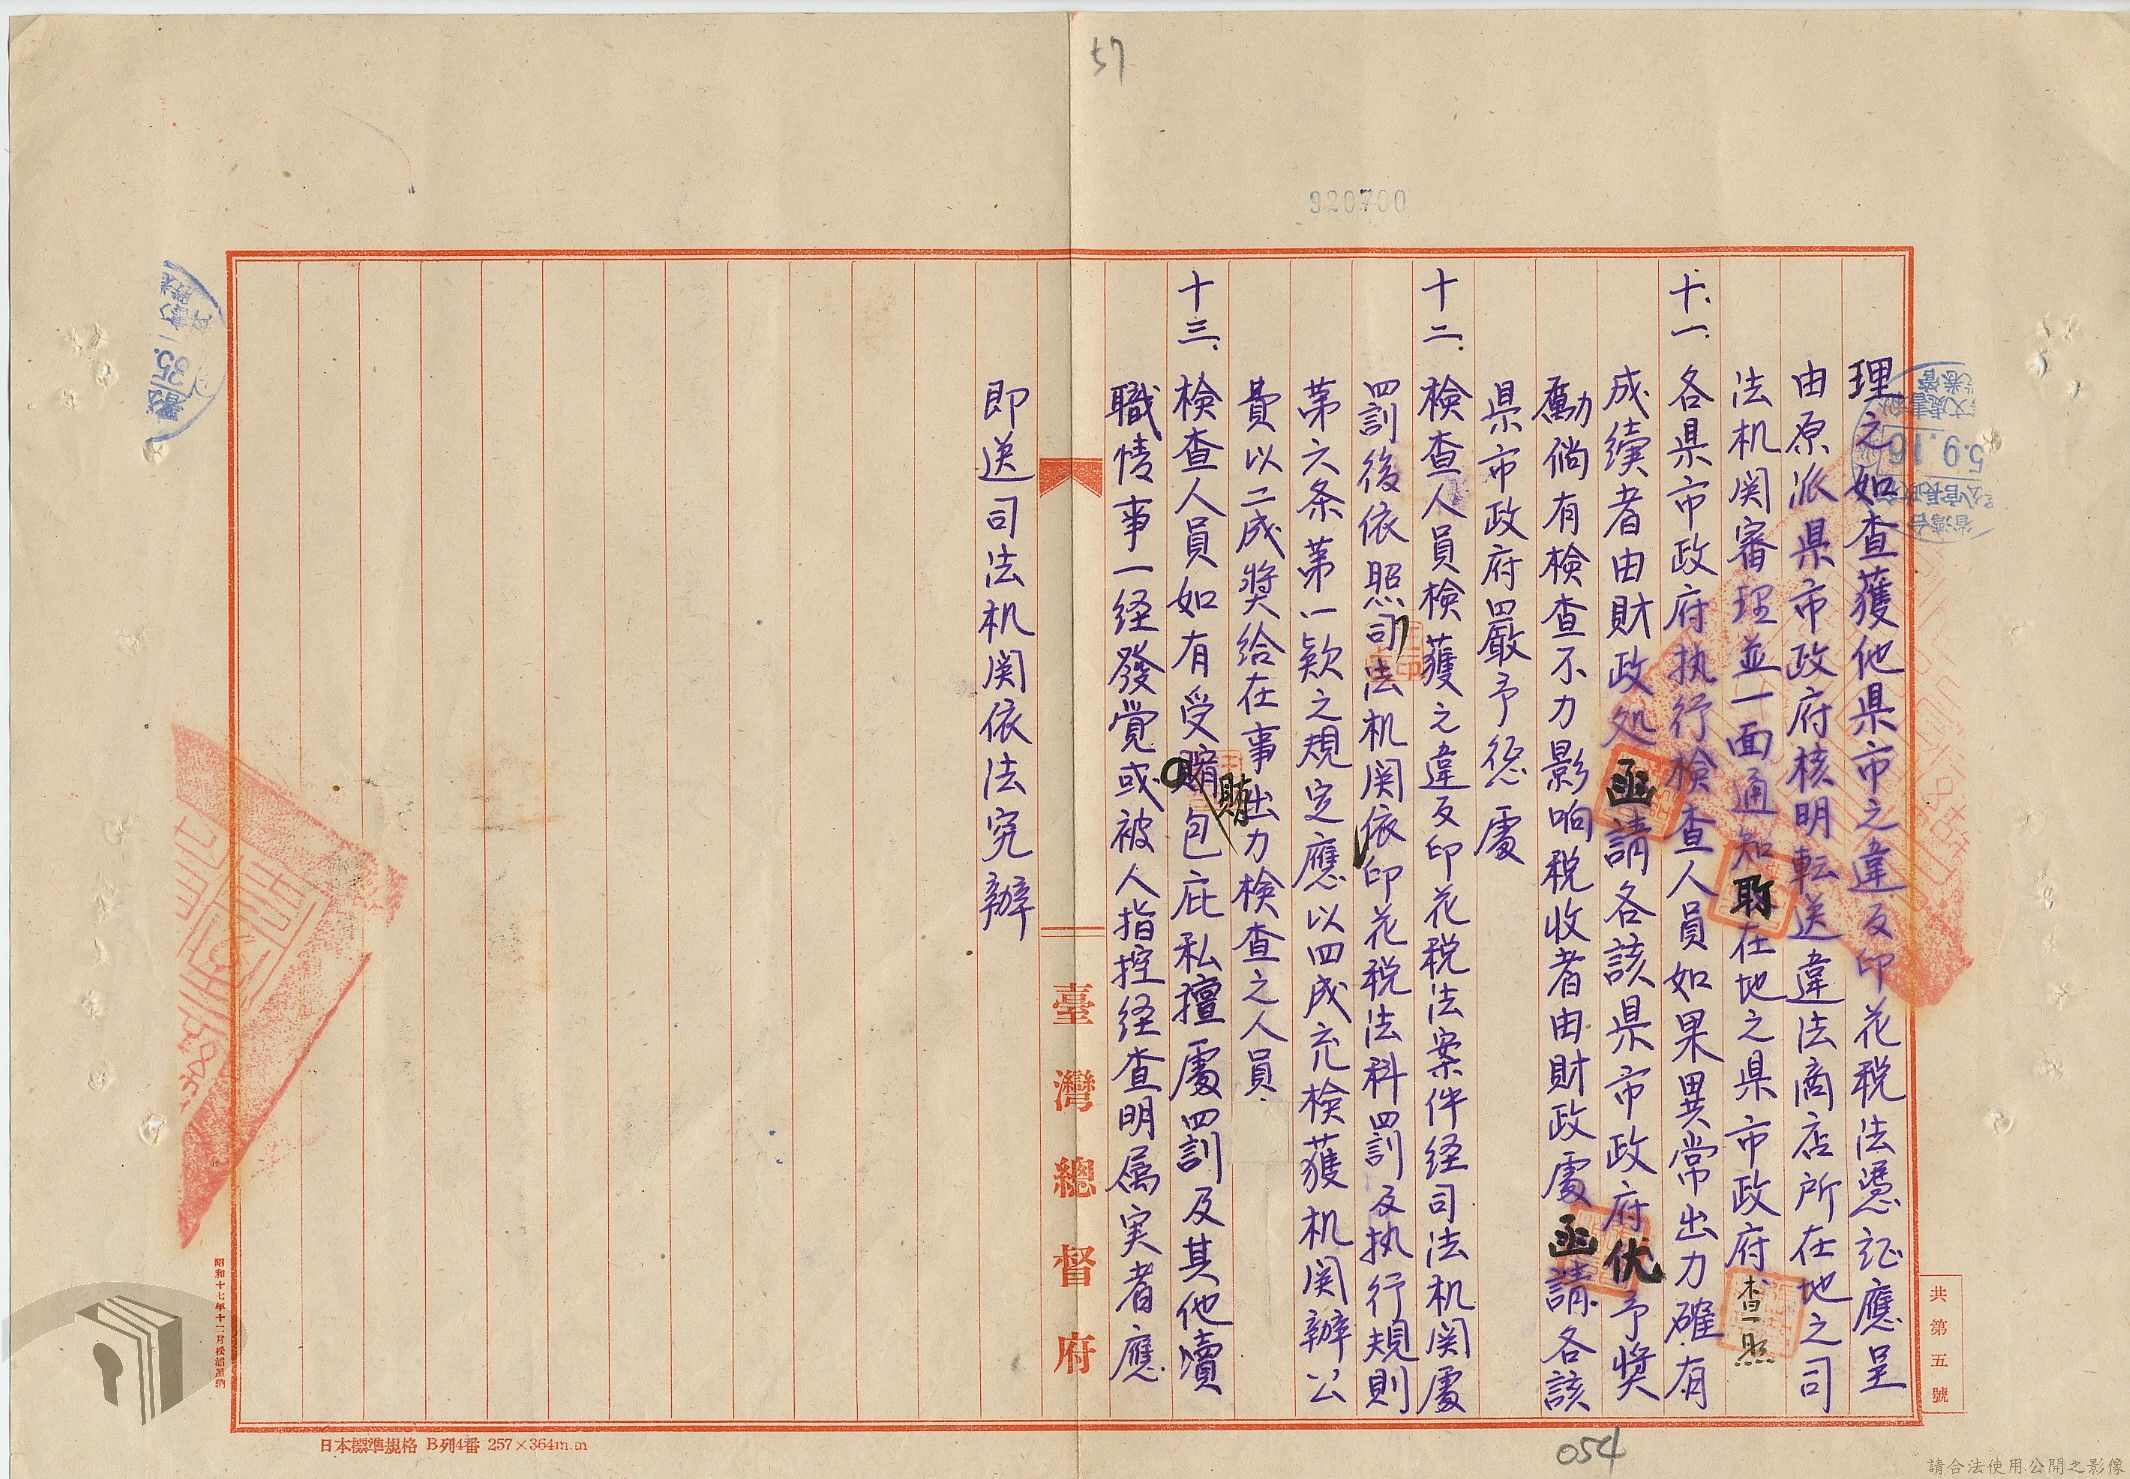 57
920700
理之如查獲他県市之違反印花税法憑証應呈
由原派県市政府核明転送違法商店所在地之司
法机関審理並一面通知所在地之県市政府查照
十一、各県市政府执行檢查人員如果異常出力確有
成績者由財政処函請各該県市政府优予獎
勵倘有檢查不力影响税收者由財政處函請各該
県市政府嚴予懲處
十二、檢查人員檢獲之違反印花税法案件経司法机関處
罰後依照司法机関依印花税法科罰及执行規則
第六条第一款之規定應以四成充檢獲机関辦公
費以二成獎給在事出力檢查之人員.
十三、檢查人員如有受賄包庇私擅處罰及其他瀆
職情事一経發覚或被人指控経查明属実者應
即送司法机関依法究辦
臺灣總督府
共第五號
日本標準規格 B列4番 257×364m.m
054
請合法使用公開之影像